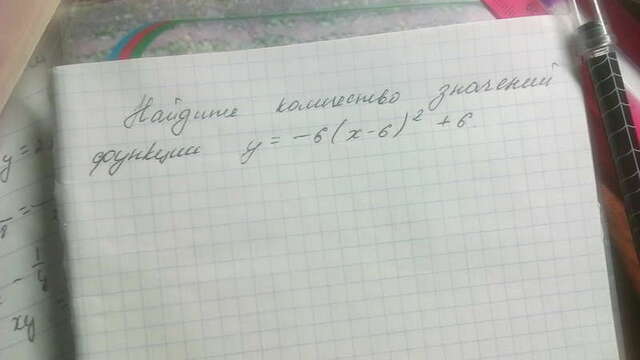 Найдите количество значений
функции y = -6(x-6)² + 6.
y = 2
xy